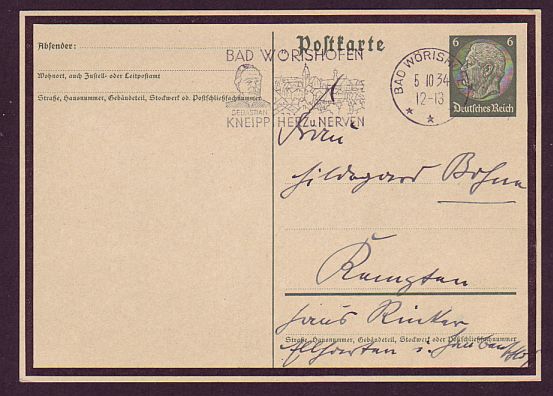 Postkarte
Absender:
Wohnort, auch Zustell- oder Leitpostamt
Straße, Hausnummer, Gebäudeteil, Stockwerk od. Postschließfachnummer
BAD WÖRISHOFEN
SEBASTIAN
KNEIPP HERZ u NERVEN
BAD WÖRISHOFEN
5 10 34
12-13
* *
6 6
Deutsches Reich
Frau
Hildegard Bohne
Kempten
Haus Rinker
Straße, Hausnummer, Gebäudeteil, Stockwerk oder Postschließfachnummer